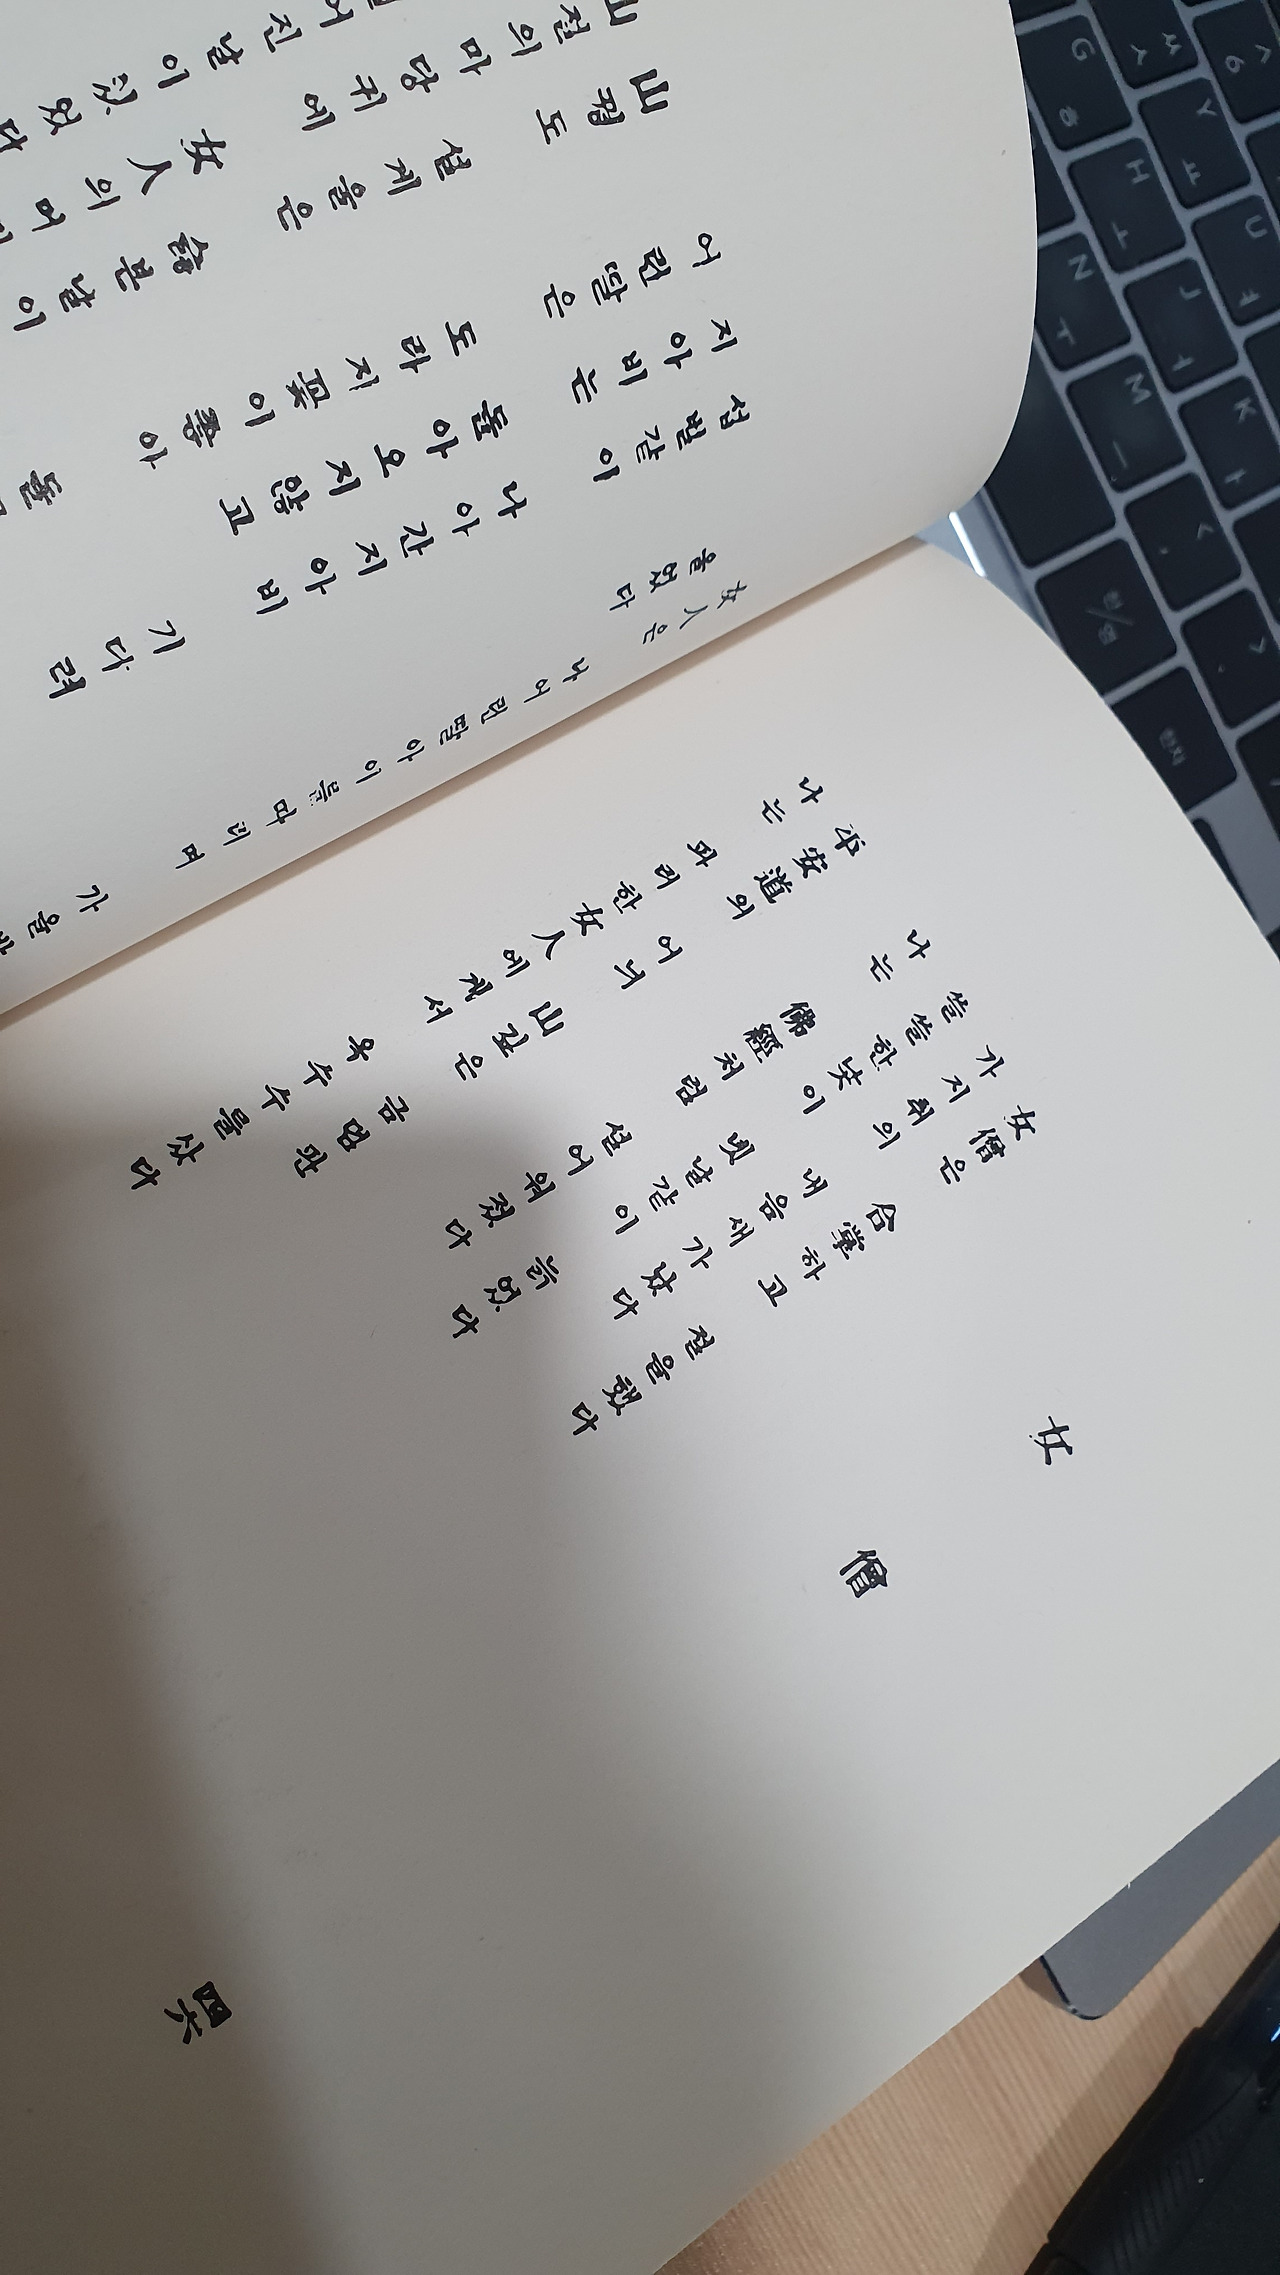 女僧
女僧은 合掌하고 절을했다
가지취의 내음새가났다
쓸쓸한낯이 녯날같이 늙었다
나는 佛經처럼 설어워졌다
平安道의 어늬 山깊은 금덤판
나는 파리한女人에게서 옥수수를샀다
四六
女人은 나어린딸아이를따리며 가을
울었다
섭벌같이 나아간지아비 기다려
지아비는 돌아오지않고
어린딸은 도라지꽃이좋아 돌
山꿩도 설게울은 슳븐날이
山절의마당귀에 女人의머
어진날이 있었다
^
6
ㅆ
ㅅ
G
ㅎ
Y
ㅛ
H
ㅗ
U
ㅕ
N
ㅜ
J
ㅓ
M
ㅡ
K
ㅏ
<
,
>
.
한/영
한자